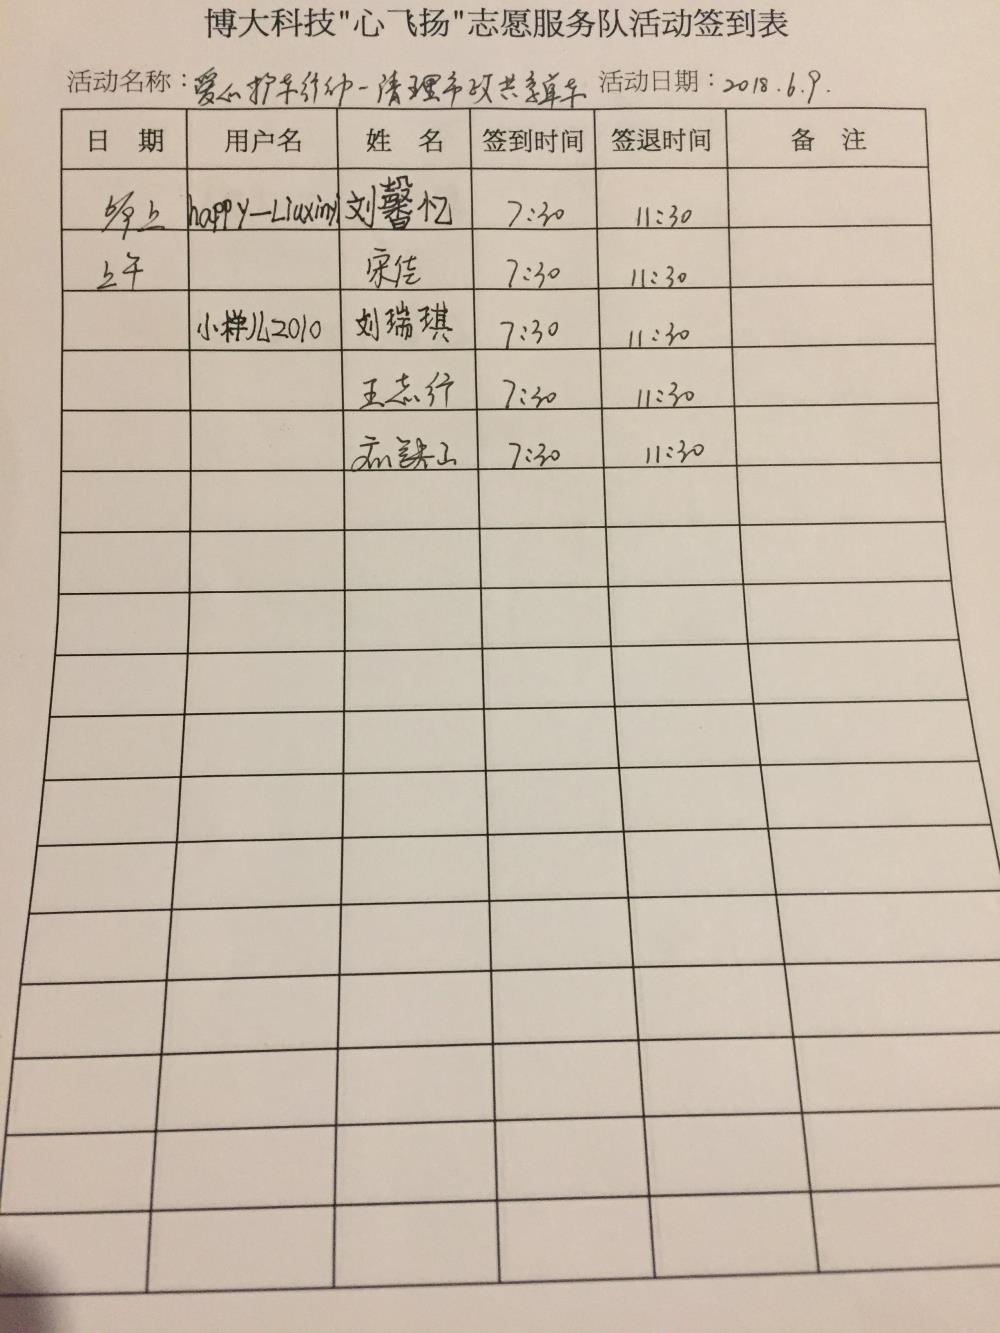 博大科技"心飞扬"志愿服务队活动签到表
活动名称：爱心护车行动-清理市政共享单车 活动日期：2018.6.9.
日 期 用户名 姓 名 签到时间 签退时间 备 注
happy—Liuxinyi 刘馨忆 7:30 11:30
上午 宋佳 7:30 11:30
小样儿2010 刘瑞琪 7:30 11:30
王志行 7:30 11:30
7:30 11:30